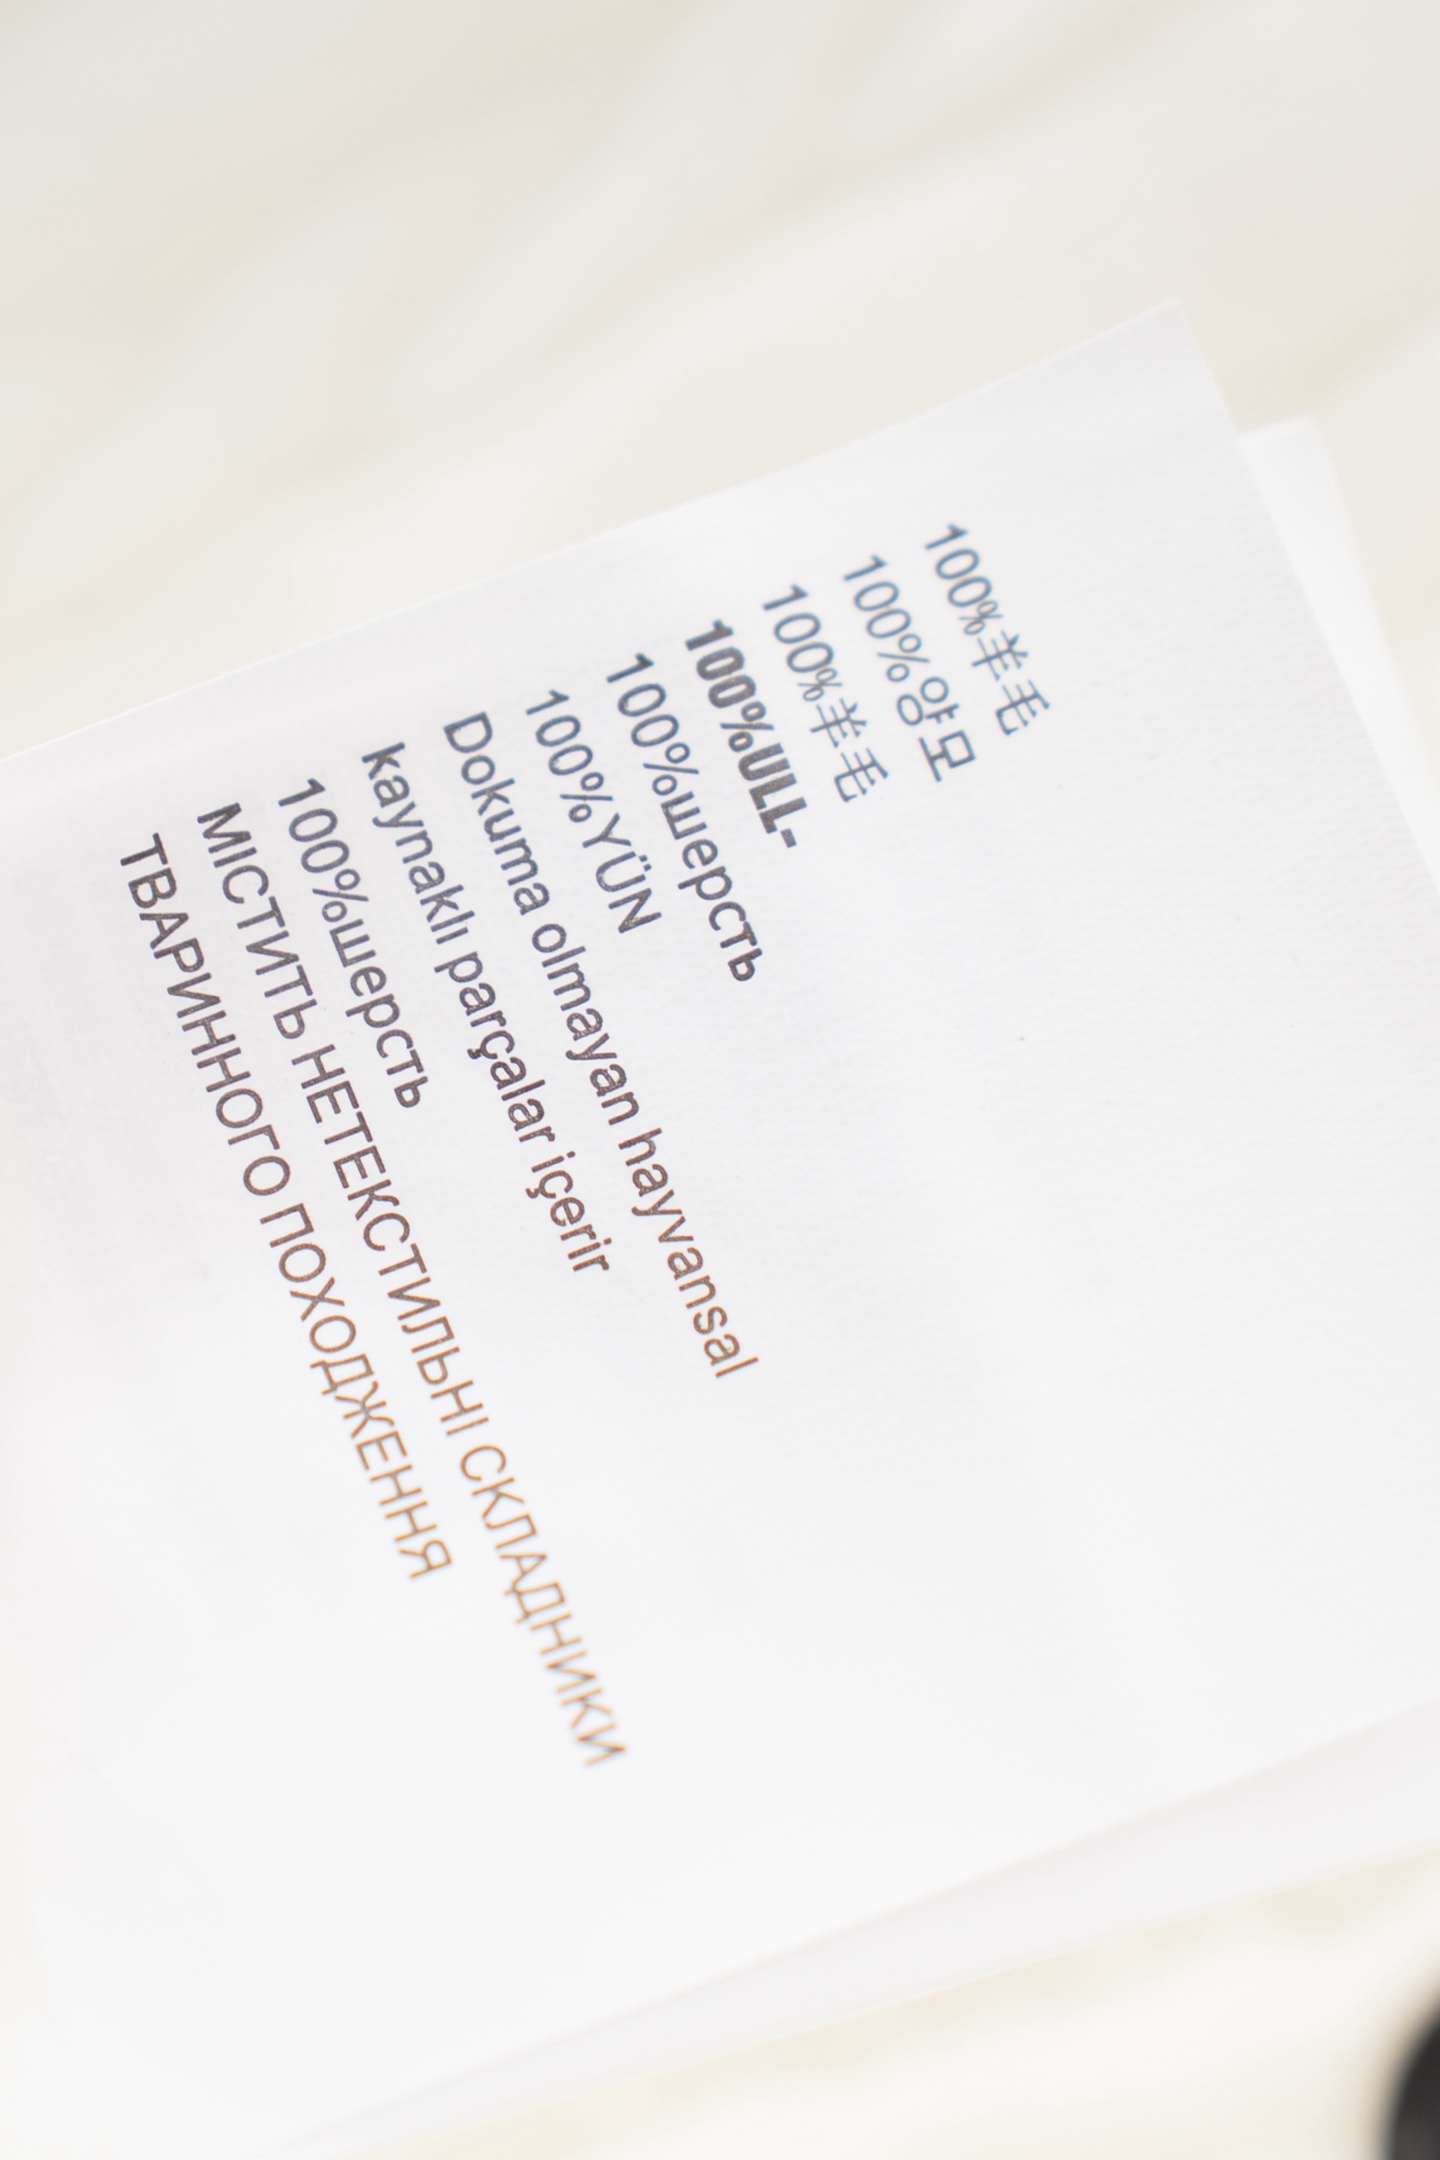 100%羊毛
100%양모
100%羊毛
100%ULL-
100%шерсть
100%YÜN
Dokuma olmayan hayvansal
kaynaklı parçalar içerir
100%шерсть
МІСТИТЬ НЕТЕКСТИЛЬНІ СКЛАДНИКИ
ТВАРИННОГО ПОХОДЖЕННЯ